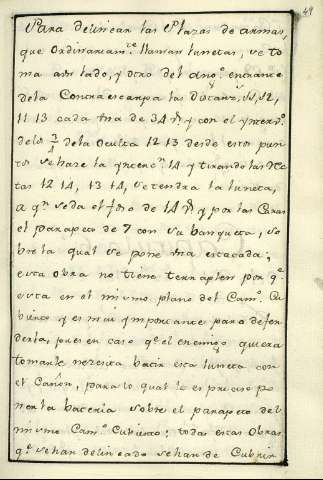 49
Para delinear las Plazas de armas,
que Ordinariam.te llaman lunetas, se to
ma a un lado, y otro del ang.o entrante
dela Contraescarpa las distanz.s
11 13 cada una de 34 y con el ynterv.o
delos 3/4 dela Oculta 12 13 desde estos pun
tos se hare la ynterc.n 14 y tirando las Rec
tas 12 14, 13 14, se tendra la luneta,
a q.n se da el de 14 y por las Caras
el parapeto de 7 con su banqueta, so
bre la qual se pone una estacada;
esta obra no tiene terraplen por q.e
esta en el mismo plano del Cam.o Cu
bierto y es mui ymportante para defen
derla, pues en caso q.e el enemigo quiera
tomarle necesita batir esta luneta con
el Cañon, para lo qual le es preciso po
ner la bateria sobre el parapeto del
mismo Cam.o Cubierto; todas estas Obras
q.e se han delineado se han de Cubrir